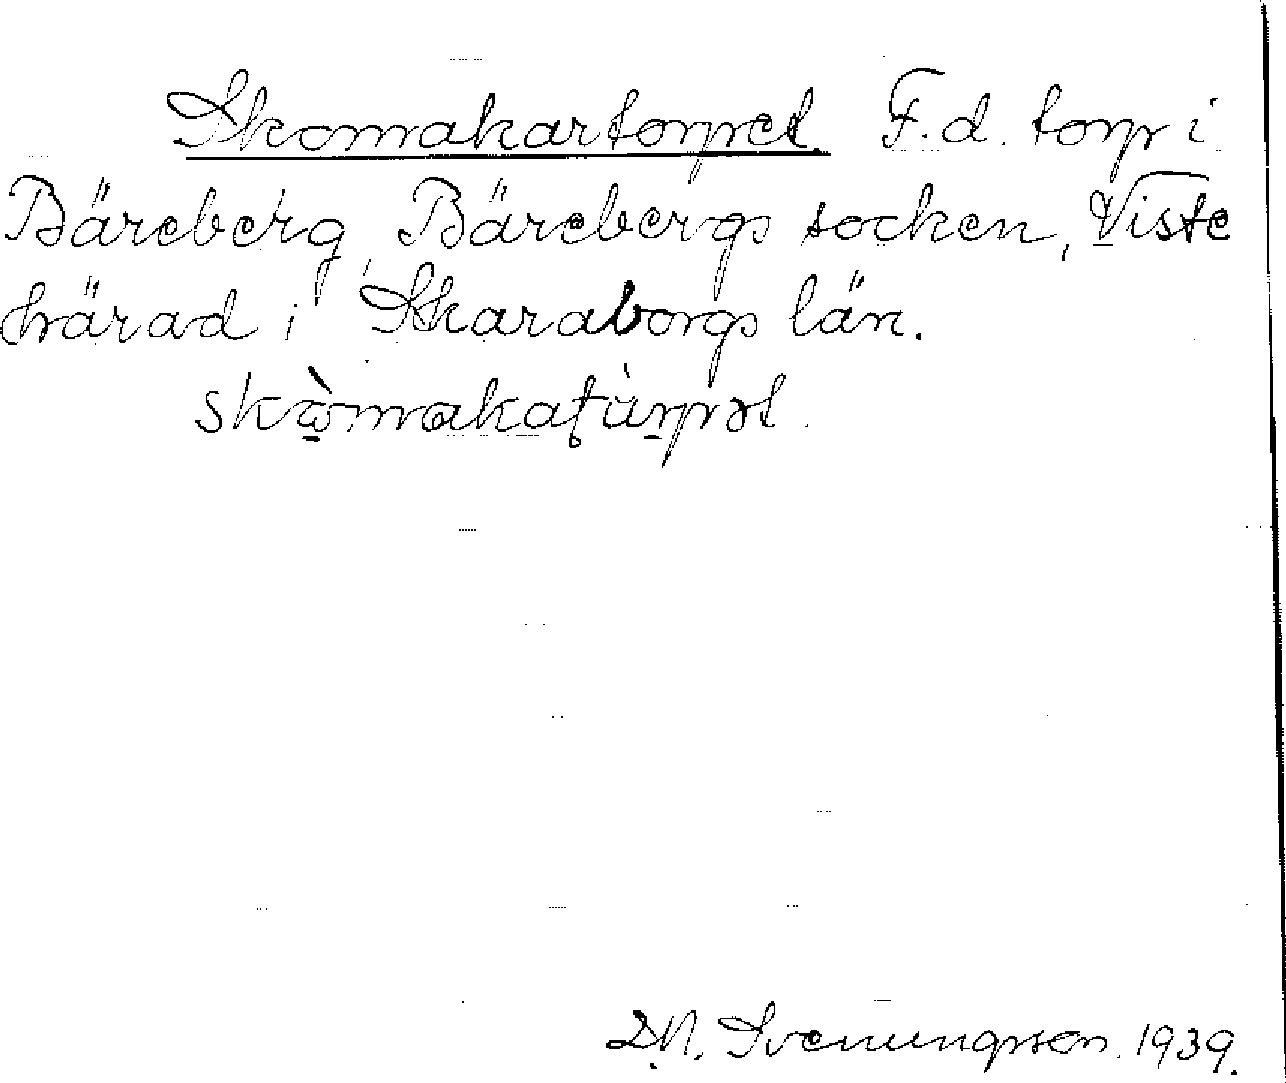 Skomakartorpet. F.d. torp i
Bäreberg, Bärebergs socken, Viste
härad i Skaraborgs län.
skòmakatùrpət.
D.N. Svenungsson. 1939.